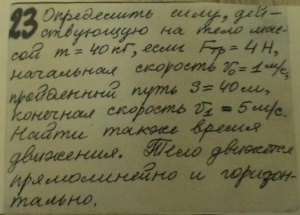 23 Определить силу, дей-
ствующую на тело мас-
сой m = 40 кГ, если Fтр = 4 Н,
начальная скорость v₀ = 1 м/с,
пройденный путь S = 40 м,
конечная скорость v₁ = 5 м/с.
Найти также время
движения. Тело движется
прямолинейно и горизон-
тально.